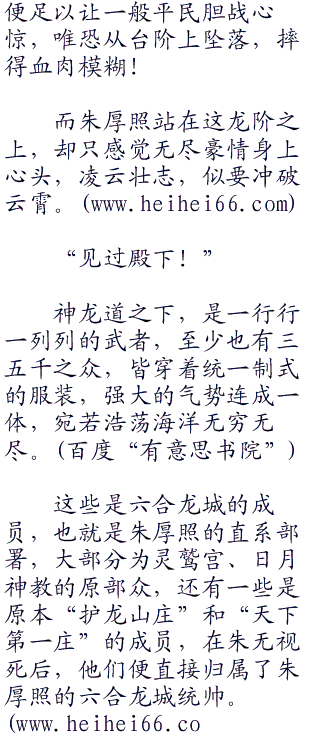 便足以让一般平民胆战心
惊，唯恐从台阶上坠落，摔
得血肉模糊！
而朱厚照站在这龙阶之
上，却只感觉无尽豪情身上
心头，凌云壮志，似要冲破
云霄。(www.heihei66.com)
“见过殿下！”
神龙道之下，是一行行
一列列的武者，至少也有三
五千之众，皆穿着统一制式
的服装，强大的气势连成一
体，宛若浩荡海洋无穷无
尽。(百度“有意思书院”)
这些是六合龙城的成
员，也就是朱厚照的直系部
署，大部分为灵鹫宫、日月
神教的原部众，还有一些是
原本“护龙山庄”和“天下
第一庄”的成员，在朱无视
死后，他们便直接归属了朱
厚照的六合龙城统帅。
(www.heihei66.co